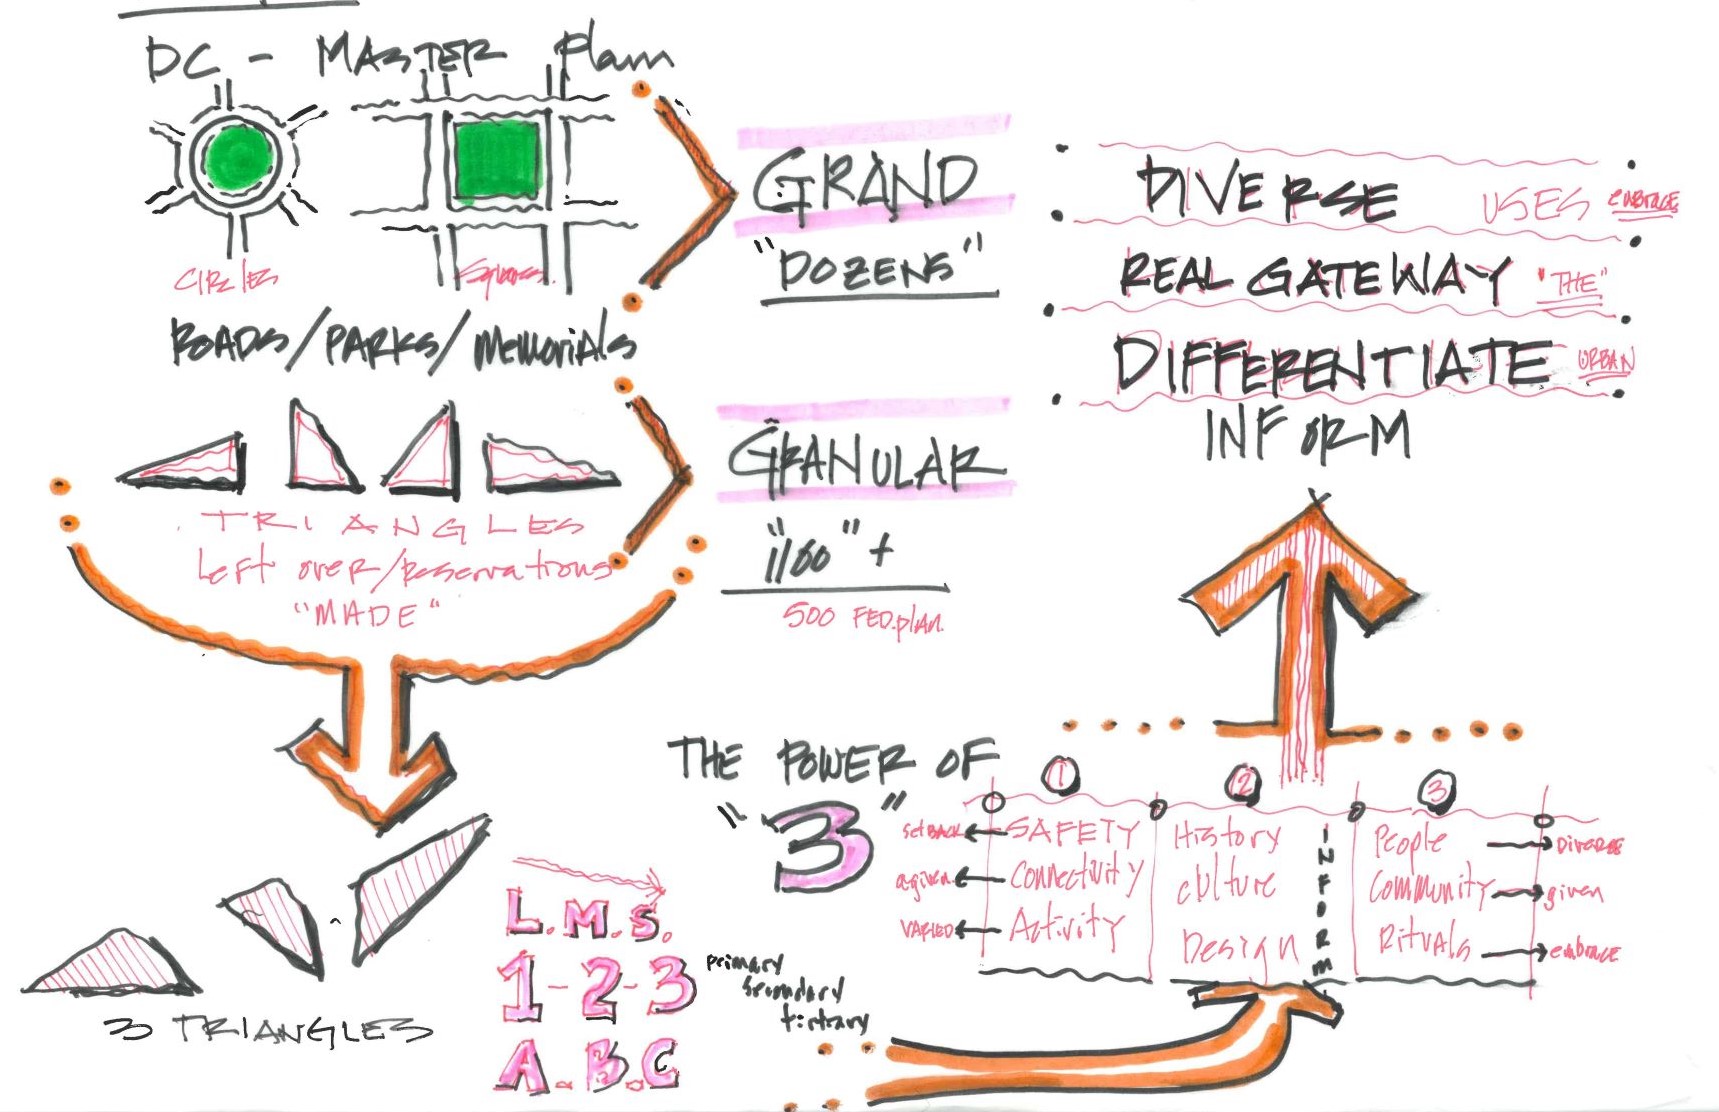 DC - MASTER Plan
CIRCLES
Squares.
ROADS/PARKS/Memorials
GRAND
"DOZENS"
TRIANGLES
Left over/Reservations
"MADE"
GRANULAR
"100"+
500 FED.plan.
DIVERSE USES embrace
REAL GATEWAY "THE"
DIFFERENTIATE URBAN
INFORM
3 TRIANGLES
L.M.S.
1-2-3 primary
secondary
tirtrary
A.B.C
THE POWER OF
"3"
1 2 3
SetBACK SAFETY History People DIVERSE
a given Connectivity culture Community given
VARIED Activity Design Rituals embrace
INFORM